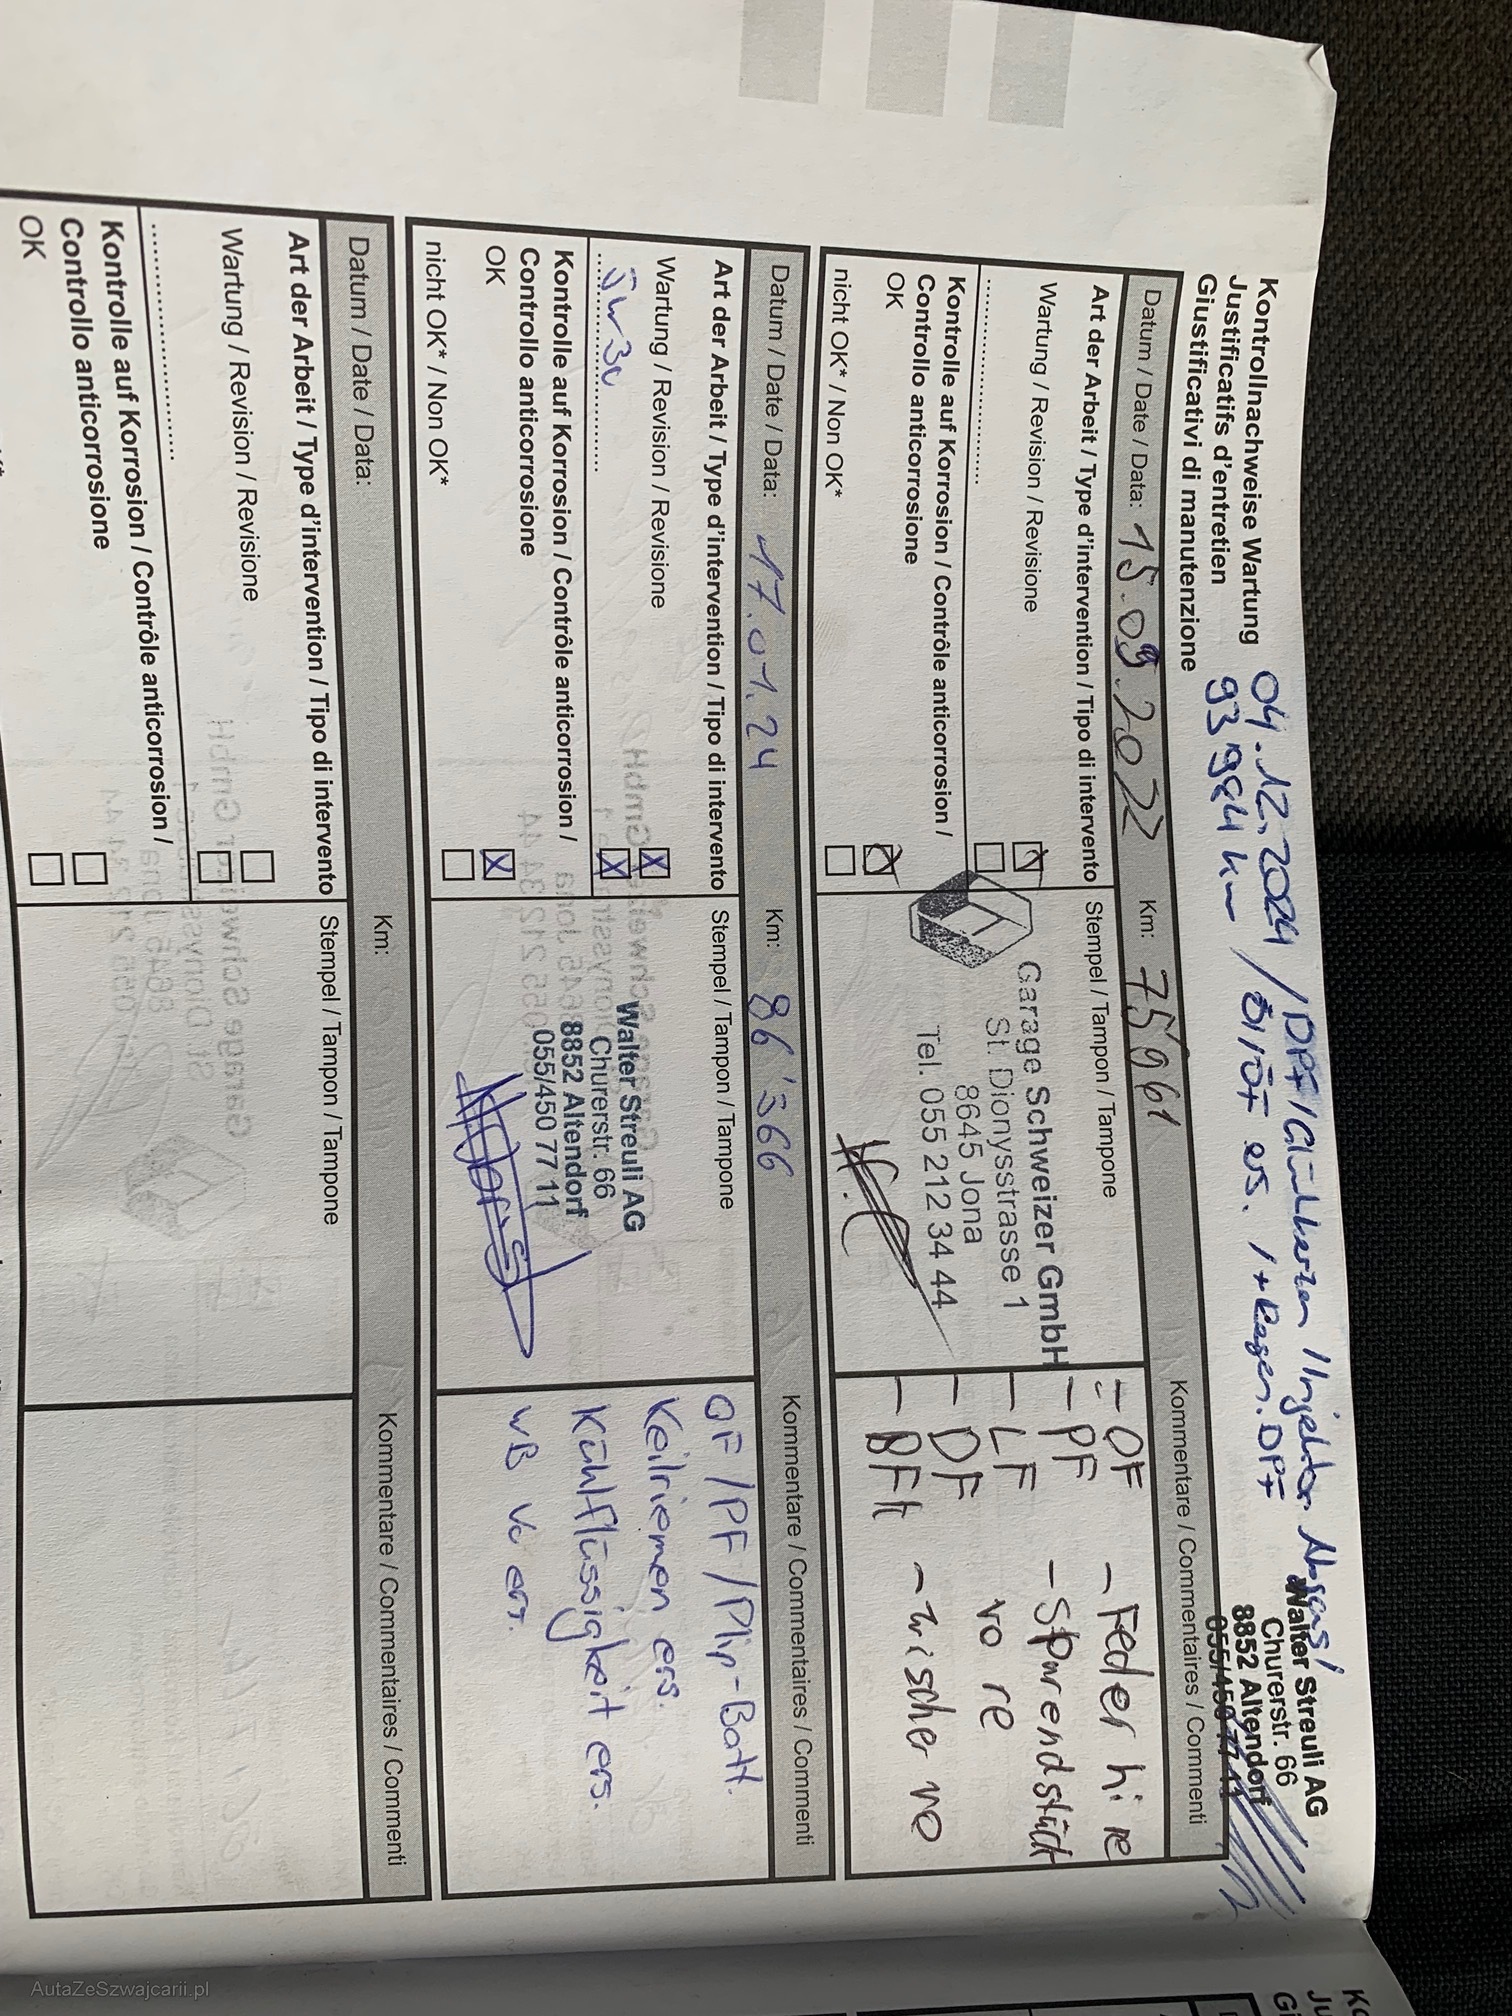 Kontrollnachweise Wartung 04.12.2024 / DPF / Glühkerzen / Injektor Abgas /
Justificatifs d'entretien 93'984 km / Öl / ÖF ers. / + Regen. DPF
Giustificativi di manutenzione
Walter Streuli AG
Churerstr. 66
8852 Altendorf
055/450 77 11
Datum / Date / Data: 15.09.2022 Km: 75961 Kommentare / Commentaires / Commenti
Art der Arbeit / Type d'intervention / Tipo di intervento Stempel / Tampon / Tampone
Wartung / Revision / Revisione
Kontrolle auf Korrosion / Contrôle anticorrosion /
Controllo anticorrosione
OK
nicht OK* / Non OK*
Garage Schweizer GmbH
St. Dionysstrasse 1
8645 Jona
Tel. 055 212 34 44
- ÖF - Feder hi re
- PF - Spurendstück
- LF vo re
- DF
- BFk - Wischer vo
Datum / Date / Data: 17.01.24 Km: 86'366 Kommentare / Commentaires / Commenti
Art der Arbeit / Type d'intervention / Tipo di intervento Stempel / Tampon / Tampone
Wartung / Revision / Revisione
5w30
Kontrolle auf Korrosion / Contrôle anticorrosion /
Controllo anticorrosione
OK
nicht OK* / Non OK*
Walter Streuli AG
Churerstr. 66
8852 Altendorf
055/450 77 11
ÖF / PF / Plip-Batt.
Keilriemen ers.
Kühlflüssigkeit ers.
WB Vo ers.
Datum / Date / Data: Km: Kommentare / Commentaires / Commenti
Art der Arbeit / Type d'intervention / Tipo di intervento Stempel / Tampon / Tampone
Wartung / Revision / Revisione
Kontrolle auf Korrosion / Contrôle anticorrosion /
Controllo anticorrosione
OK
AutaZeSzwajcarii.pl